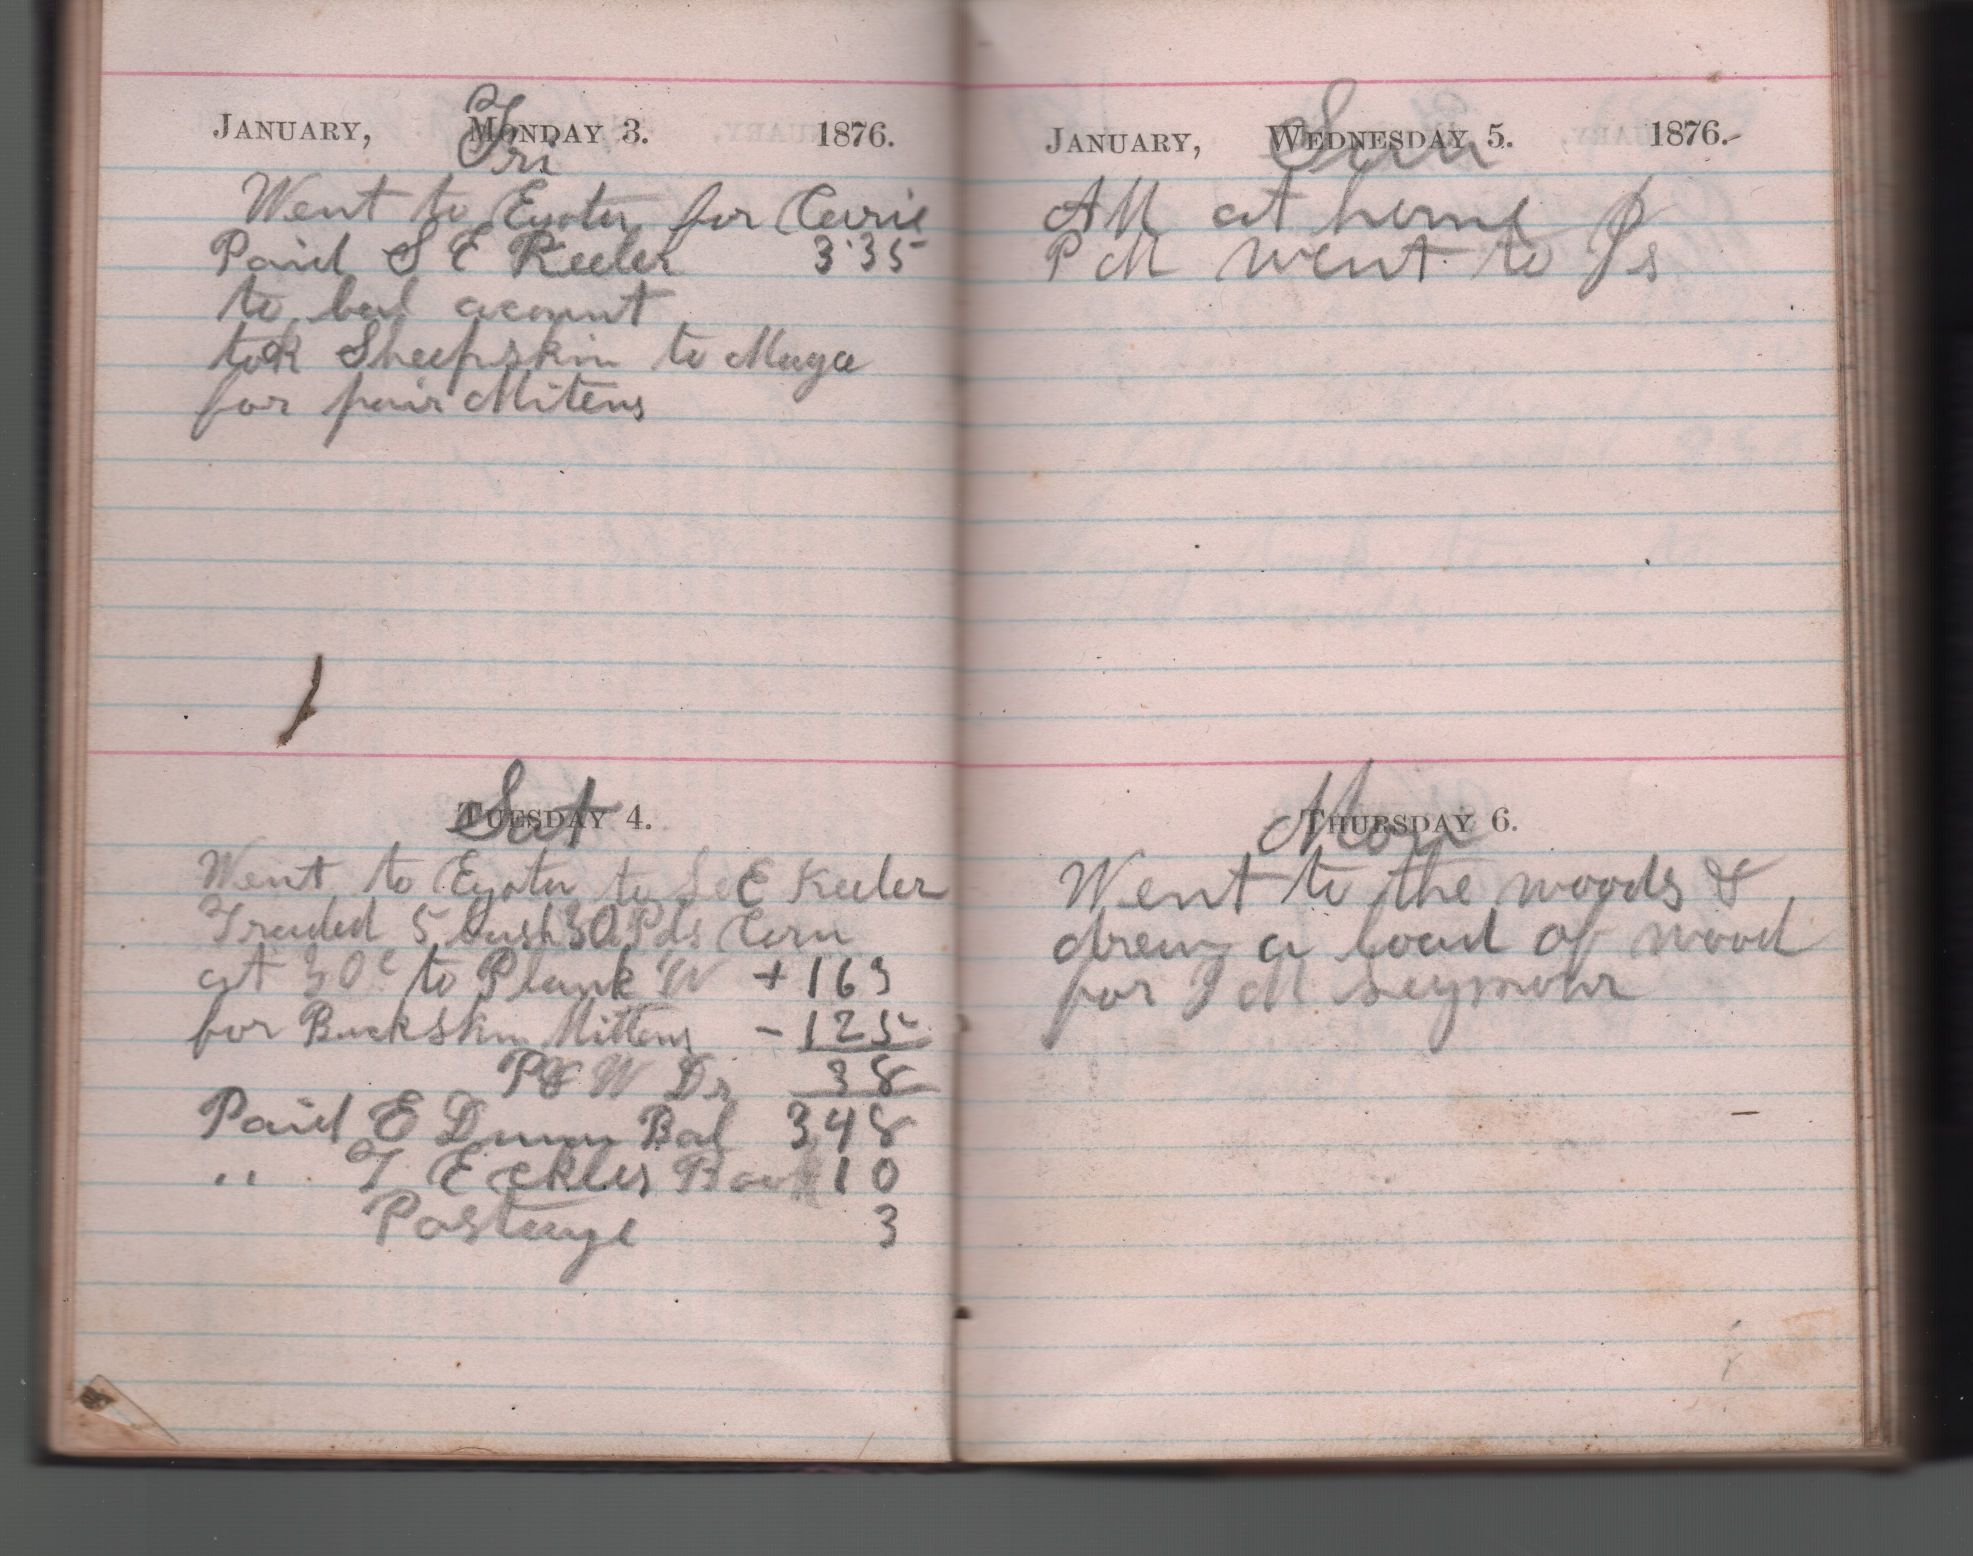 JANUARY, MONDAY 3. 1876.
Fri
Went to Eyota for Carrie
Paid S E Keeler 3.35
to bal acount
tok Sheepskin to
for pair Mitens
TUESDAY 4.
Sat
Went to Eyota to S E Keeler
Traded 5 bush 30 Pds Corn
at 30c to Plank W + 163
for Buckskin Mittens - 125
P & W Dr 38
Paid E Dunn Bal 348
" T Eckles 10
Postage 3
JANUARY, WEDNESDAY 5. 1876.
Sun
AM at home
P M went to Js
THURSDAY 6.
Mon
Went to the woods &
drew a load of wood
for J M Seymour